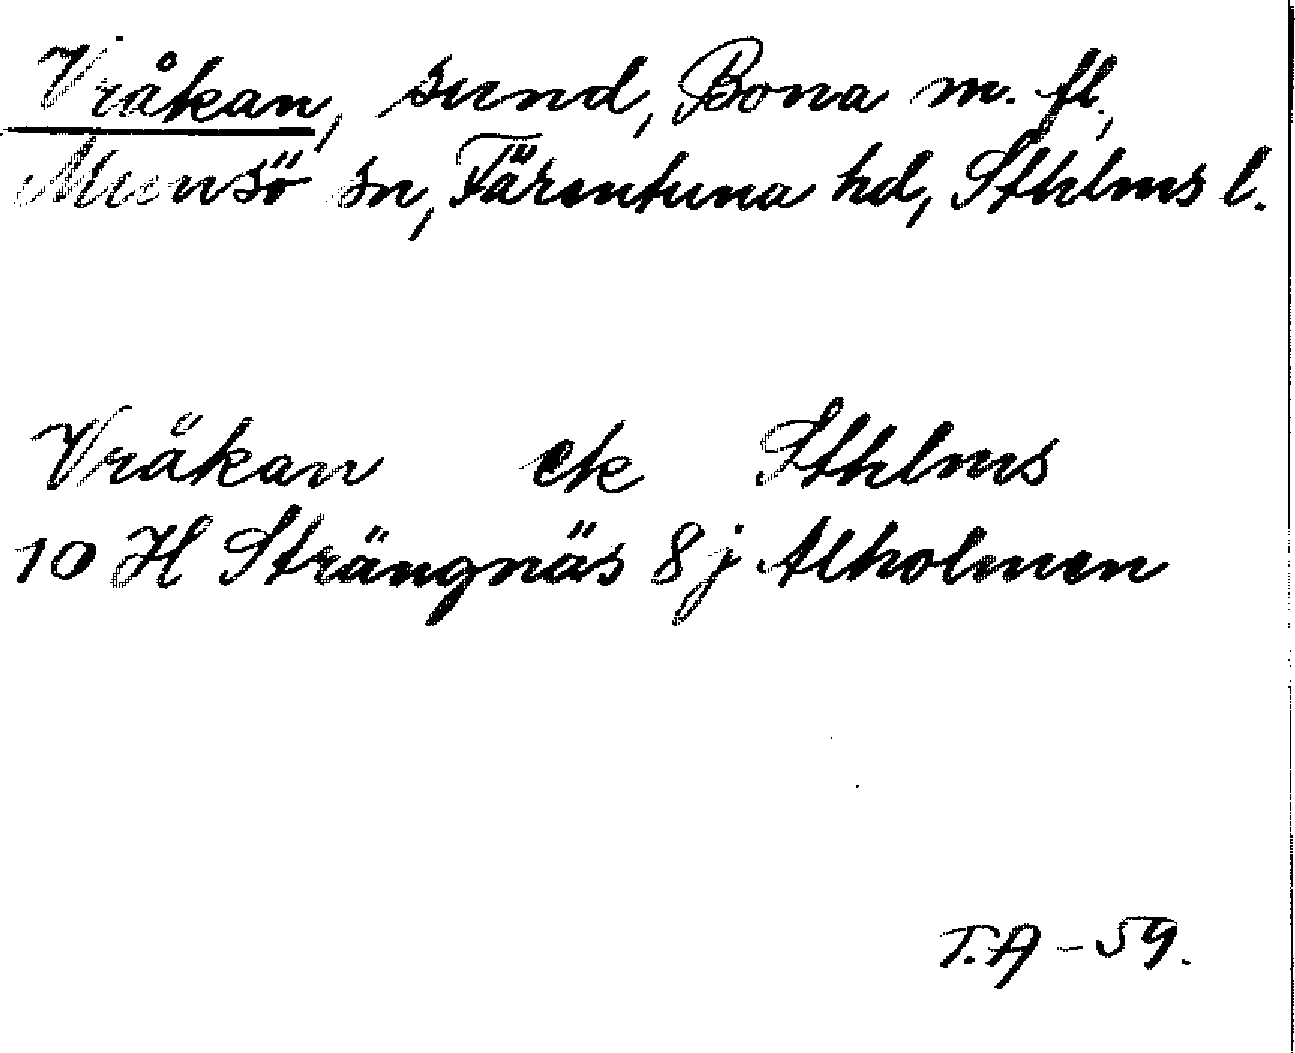 Vråkan, sund, Bona m. fl.,
Munsö sn, Färentuna hd, Sthlms l.
Vråkan ek Sthlms
10 H Strängnäs 8j Alholmen
T.A - 59.